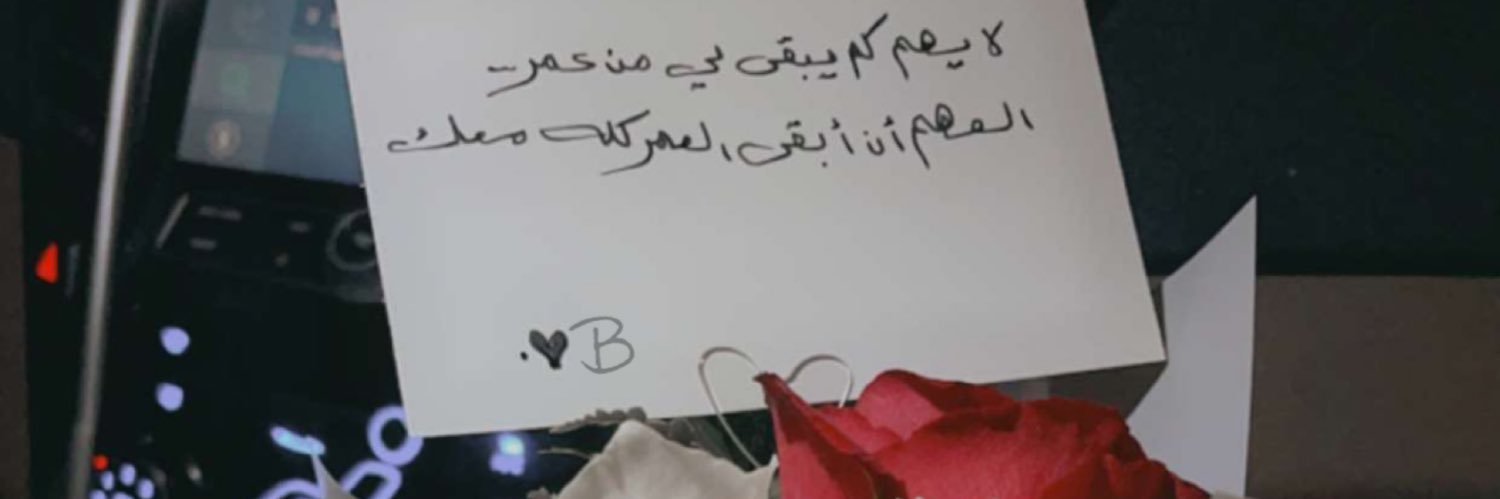 لا يهم كم يبقى لي من عمر..
المهم أن أبقى العمر كله معك
B♥.